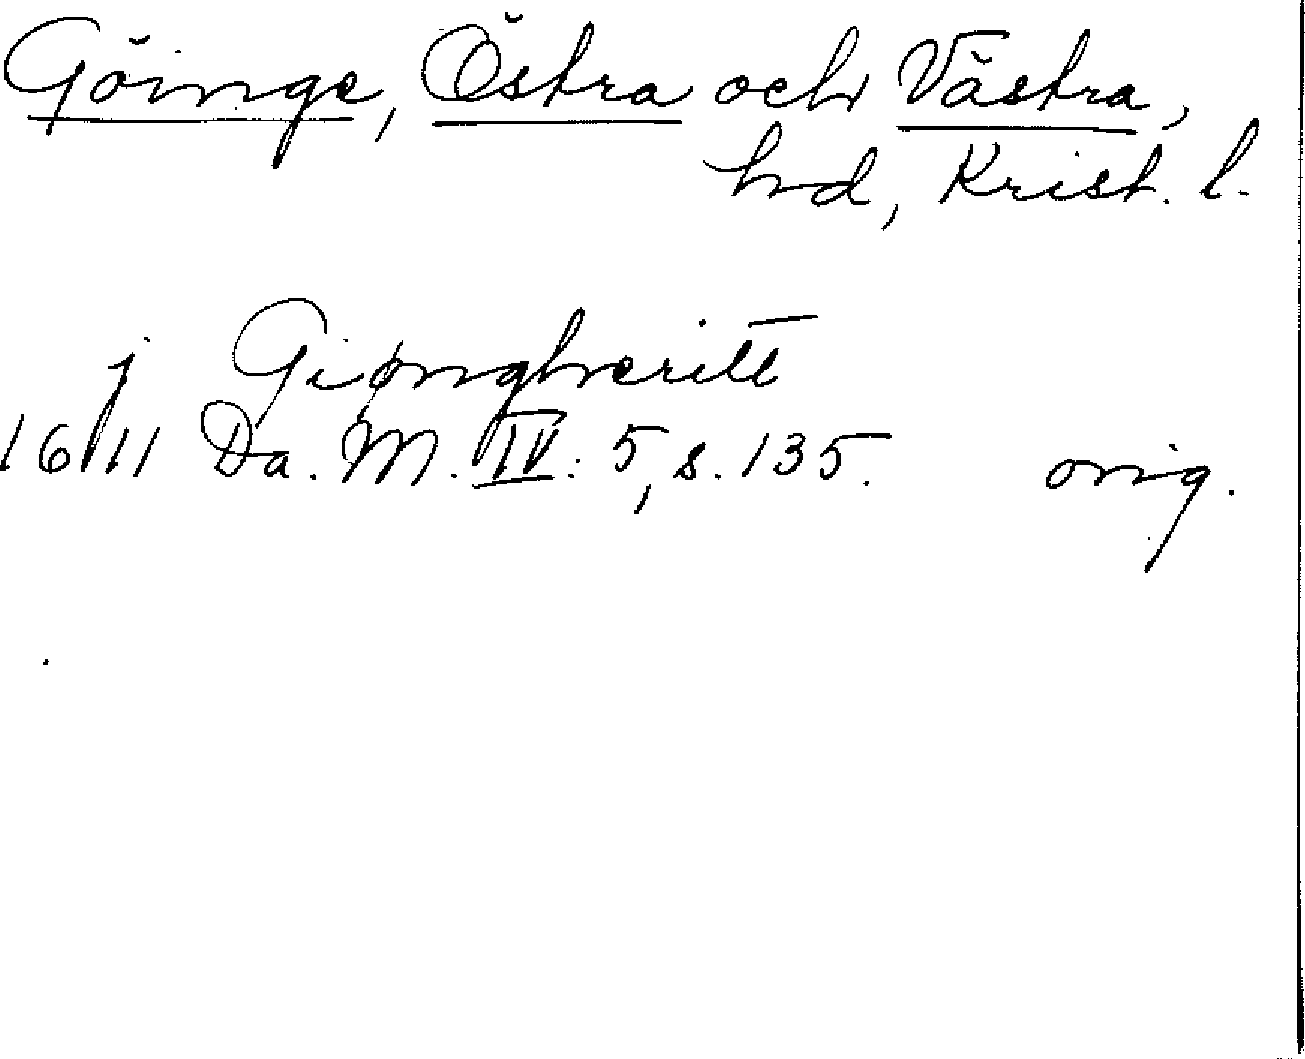 Göinge, Östra och Västra,
hd, Krist. l.
j Giøngheritt
1611 Da. M. IV: 5, s. 135. orig.